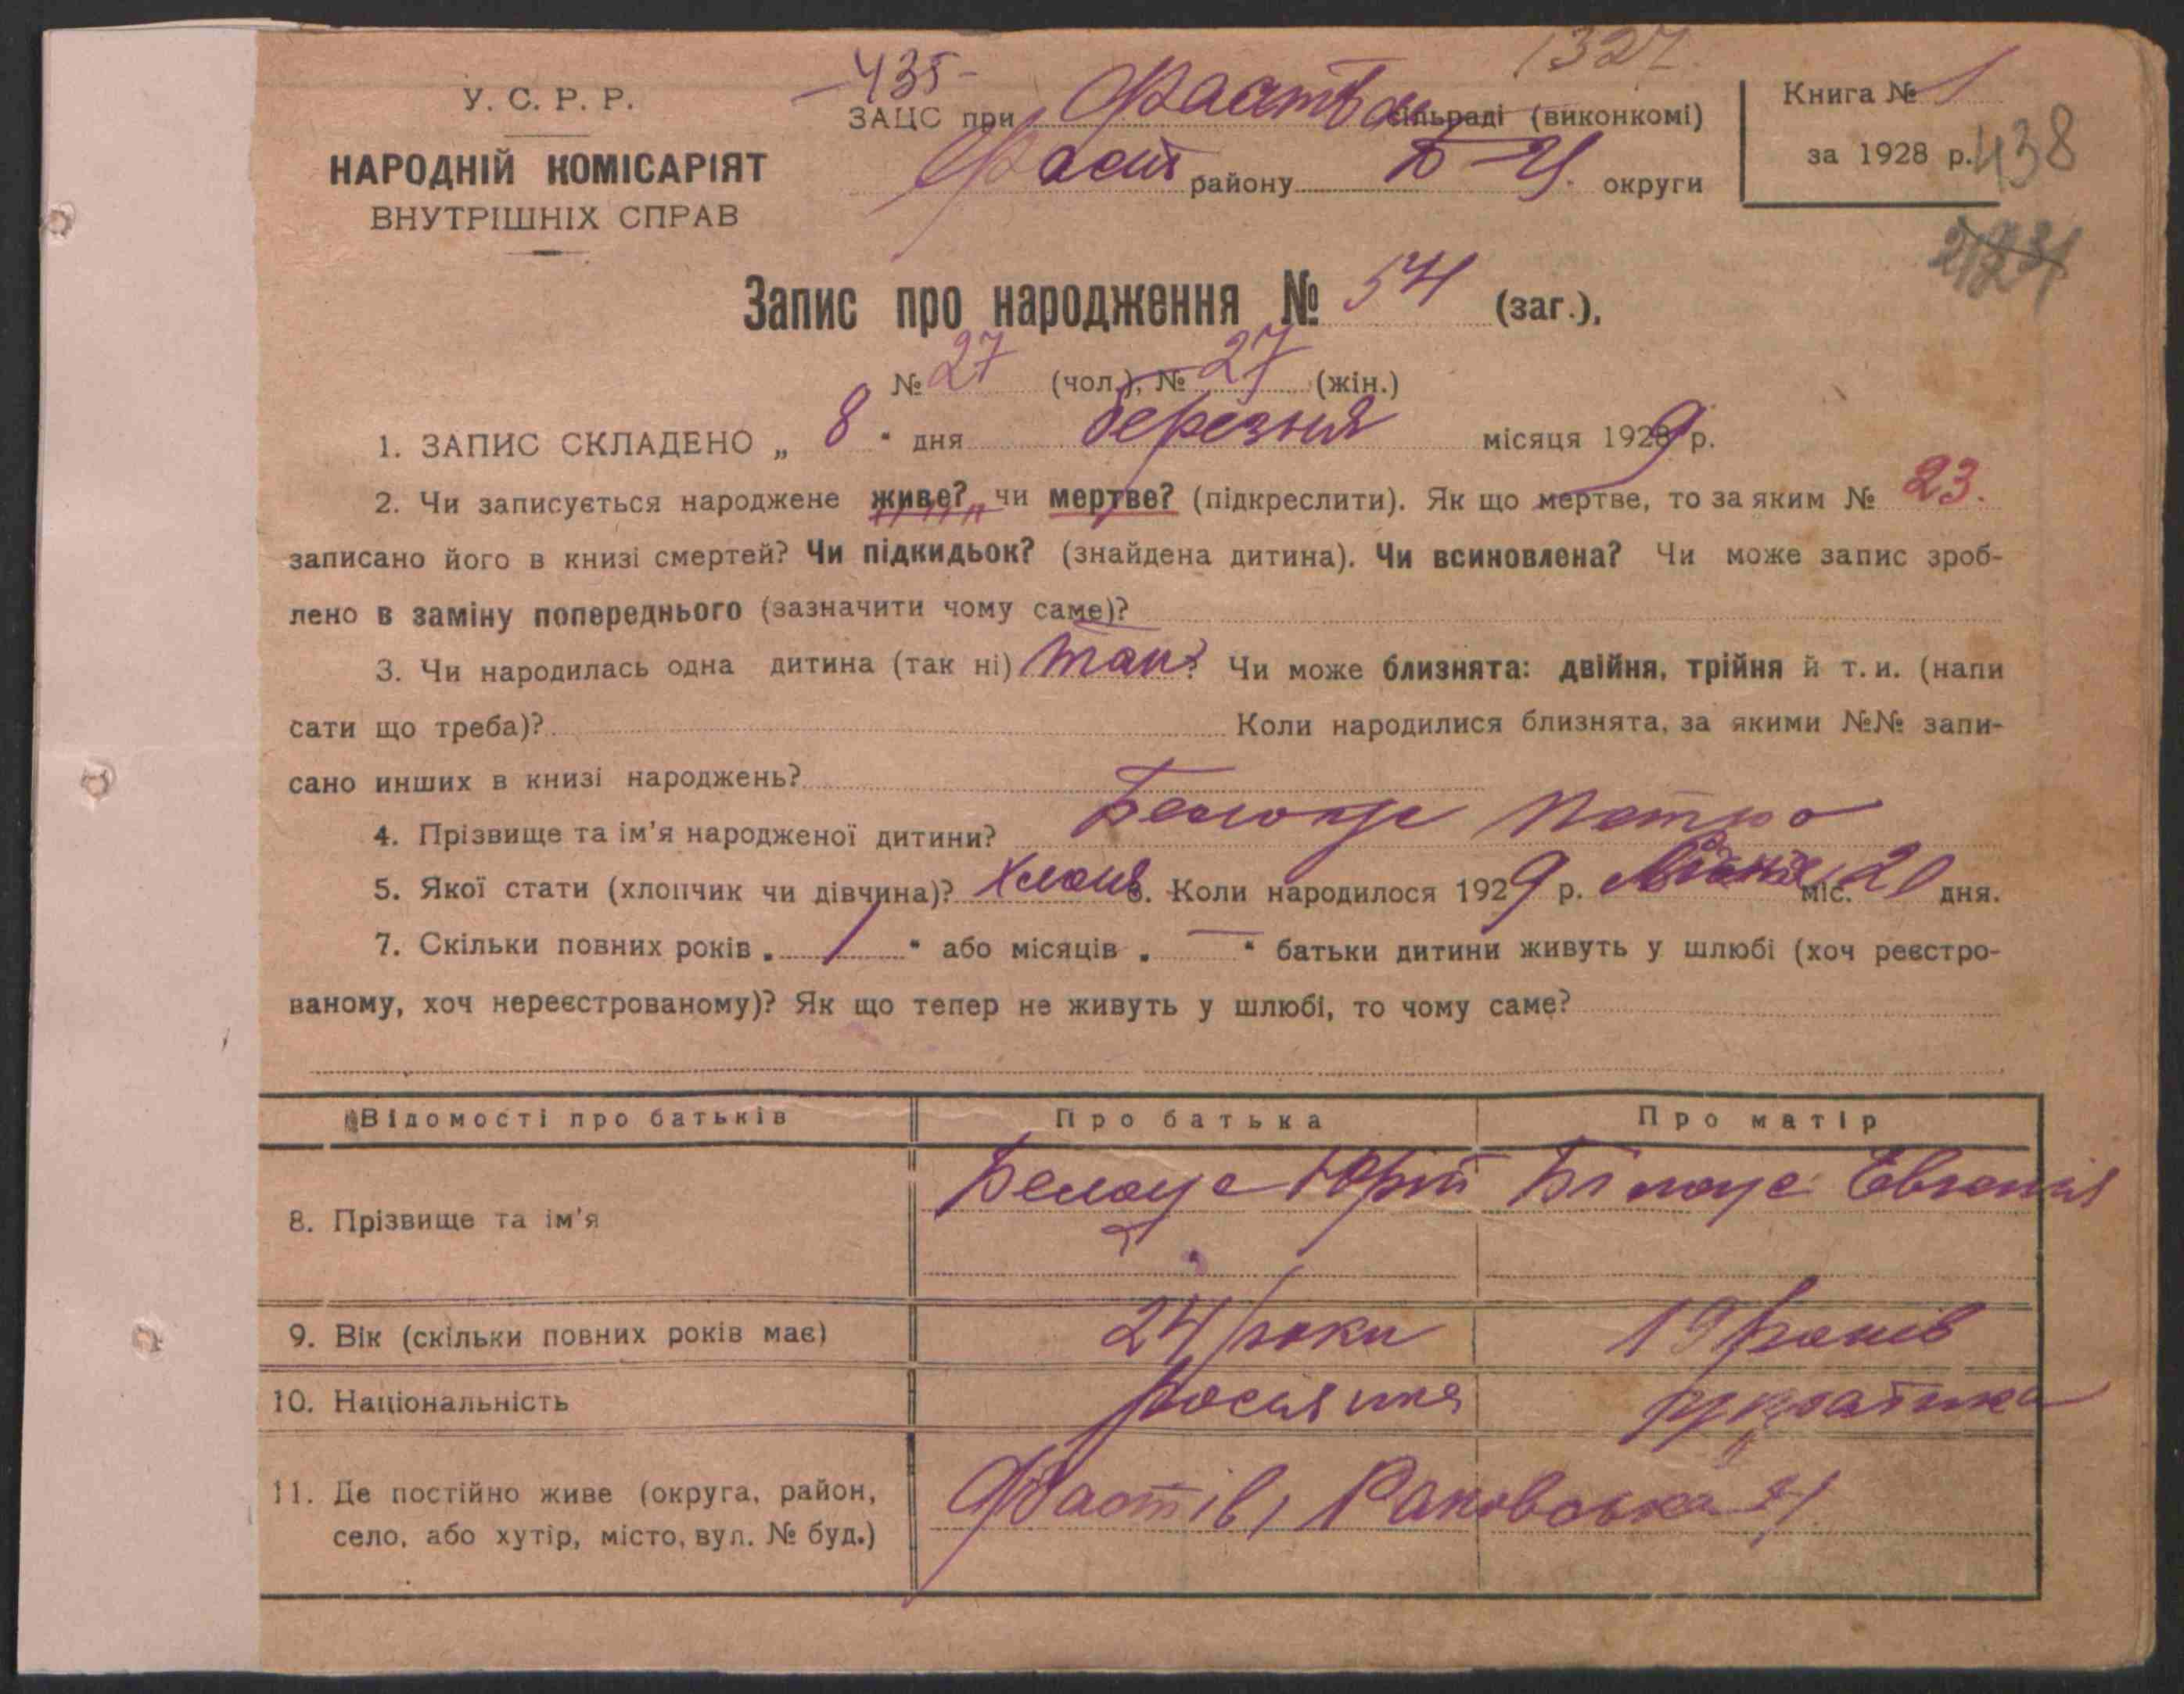 1327.
-435-
У. С. Р. Р.
НАРОДНІЙ КОМІСАРІЯТ
ВНУТРІШНІХ СПРАВ
ЗАЦС при сільраді (виконкомі)
Фаст району Б-Ц. округи
Книга № 1
за 1928 р. 438
Запис про народження № 54 (заг.),
№ 27 (чол.), № 27 (жін.)
1. ЗАПИС СКЛАДЕНО „ 8 " дня березня місяця 1929 р.
2. Чи записується народжене живе? чи мертве? (підкреслити). Як що мертве, то за яким № 23.
записано його в книзі смертей? Чи підкидьок? (знайдена дитина). Чи всиновлена? Чи може запис зроб-
лено в заміну попереднього (зазначити чому саме)?
3. Чи народилась одна дитина (так ні) так? Чи може близнята: двійня, трійня й т. и. (напи
сати що треба)? Коли народилися близнята, за якими №№ запи-
сано инших в книзі народжень?
4. Прізвище та ім'я народженої дитини? Белоус Петро
5. Якої стати (хлопчик чи дівчина)? Хлопч 6. Коли народилося 1929 р. міс. 20 дня.
7. Скільки повних років „ 1 " або місяців „ — " батьки дитини живуть у шлюбі (хоч реєстро-
ваному, хоч нереєстрованому)? Як що тепер не живуть у шлюбі, то чому саме?
Відомості про батьків Про батька Про матір
8. Прізвище та ім'я Белоус Юрій Білоус Евгенія
9. Вік (скільки повних років має) 24 роки 19 років
10. Національність росіянин українка
11. Де постійно живе (округа, район, село, або хутір, місто, вул. № буд.) Фастів, Раковська 21